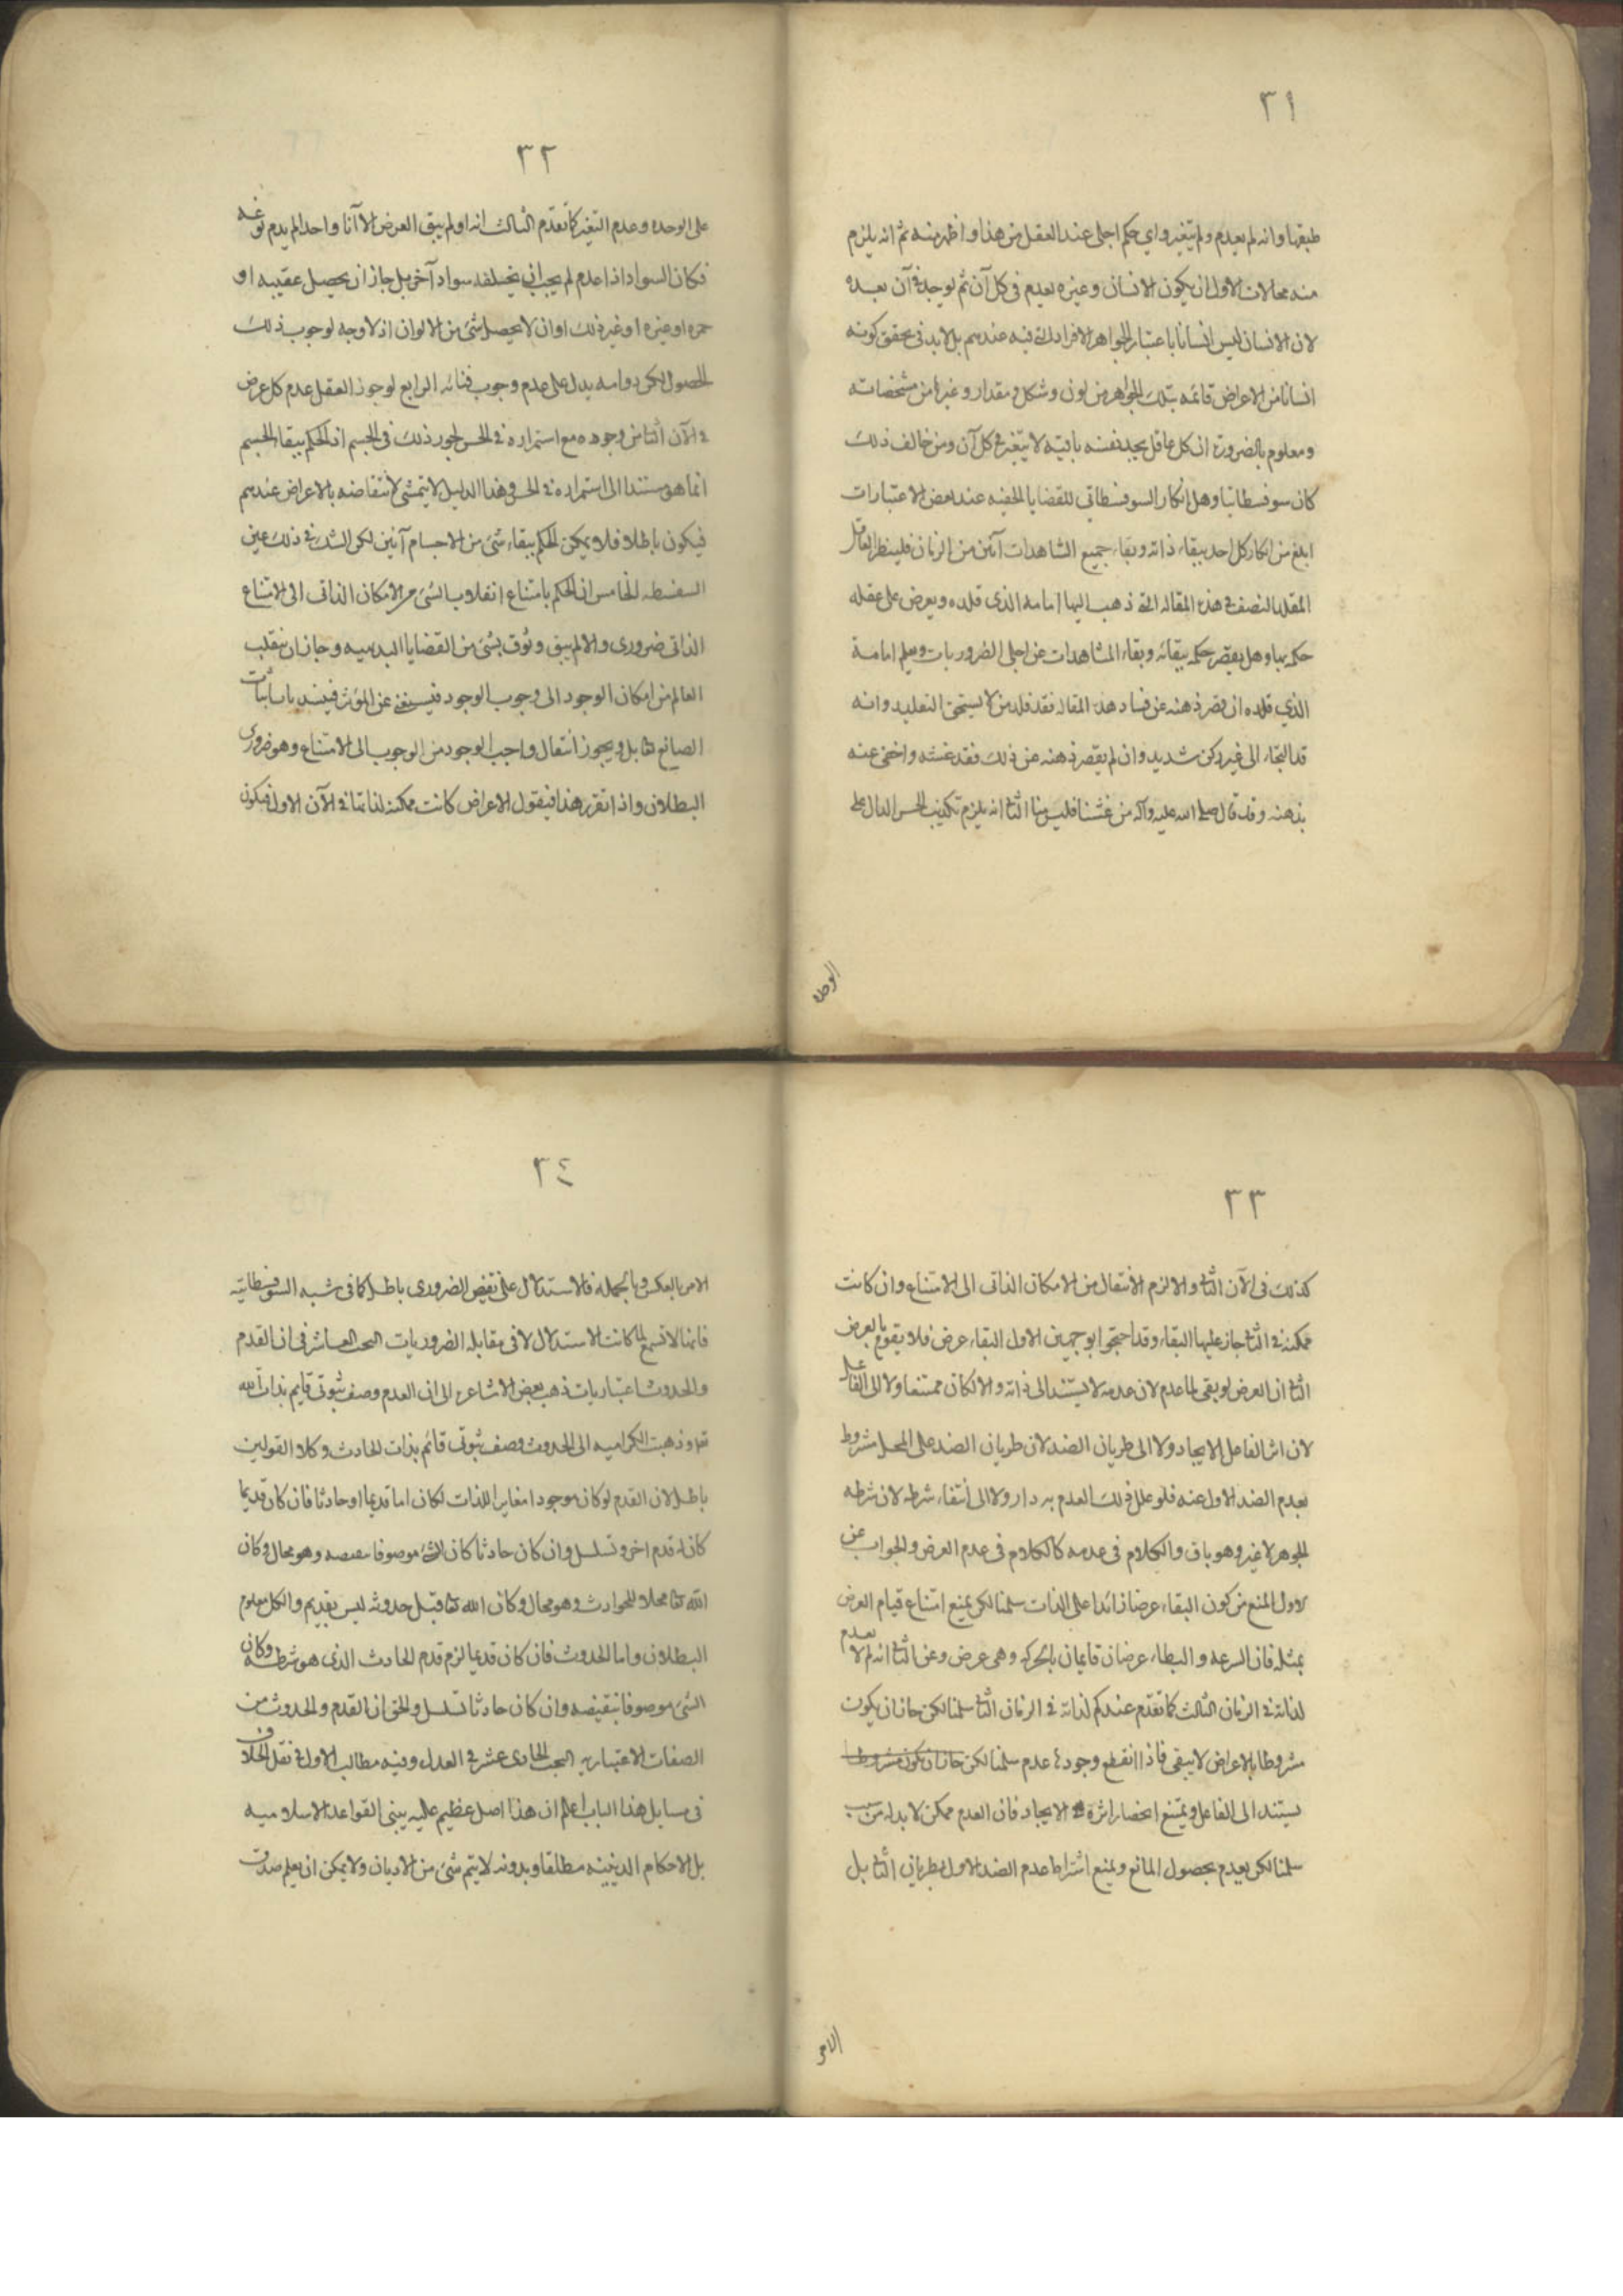 ٣١
طبقها وانه لم يعدم ولم يتغير واي حكم اجلى عند العقل من هذا واظهر منه ثم انه يلزم
منه محالات الاول ان يكون الانسان وغيره يعدم في كل آن ثم يوجد في آن بعده
لان الانسان ليس انسانا باعتبار الجواهر الافراد التي فيه عندهم بل لابد في تحقق كونه
انسانا من الاعراض قائمه بتلك الجواهر من لون وشكل و مقدار وغيرها من مشخصاته
ومعلوم بالضرورة ان كل عاقل يجد نفسه باقيه لا يتغير في كل آن ومن خالف ذلك
كان سوفسطائيا وهل انكار السوفسطائي للقضايا الخفيه عند بعض الاعتبارات
ابلغ من انكار كل احد بقاء ذاته و بقاء جميع المشاهدات آنين من الزمان فلينظر العاقل
المقلد المنصف في هذه المقاله التي ذهب اليها امامه الذي قلده ويعرض على عقله
حكمه بها وهل يقصر حكمه ببقائه وبقاء المشاهدات عن اجلى الضروريات ويعلم امامه
الذي قلده ان قصر ذهنه عن فساد هذه المقاله فقد قلد من لا يستحق التقليد وانه
قد التجاء الى غير ركن شديد وان لم يقصر ذهنه عن ذلك فقد غشه واخفى عنه
مذهبه وقد قال صلى الله عليه وآله من غشنا فليس منا الثاني انه يلزم تكذيب الحس الدال على
الوحده
٣٢
على الوحده وعدم التغير كما تقدم الثالث انه لو لم يبق العرض الا آنا واحدا لم يدم نوعه
فكان السواد اذا عدم لم يجب ان يخلفه سواد آخر بل جاز ان يحصل عقيبه او
حمره او غيره او غير ذلك او ان لا يحصل شئ من الالوان اذ لا وجه لوجوب ذلك
الحصول لكن دوامه يدل على عدم وجوب فنائه الرابع لو جوز العقل عدم كل عرض
في الآن الثاني من وجوده مع استمراره في الحس لجوز ذلك في الجسم اذ الحكم ببقاء الجسم
انما هو مستند الى استمراره في الحس وهذا الدليل لا يتمشى لانتقاضه بالاعراض عندهم
فيكون باطلا فلا يمكن الحكم ببقاء شئ من الاجسام آنين لكن الشك في ذلك عين
السفسطه الخامس ان الحكم بامتناع انقلاب الشئ من الامكان الذاتي الى الامتناع
الذاتي ضروري والا لم يبق وثوق بشئ من القضايا البديهيه وجاز ان ينقلب
العالم من امكان الوجود الى وجوب الوجود فيستغني عن المؤثر فينسد باب اثبات
الصانع تعا بل و يجوز انتقال واجب الوجود من الوجوب الى الامتناع وهو ضروري
البطلان واذا تقرر هذا فنقول الاعراض كانت ممكنه لذاتها في الآن الاول فيكون
٣٣
كذلك في الآن الثاني والا لزم الانتقال من الامكان الذاتي الى الامتناع وان كانت
ممكنه في الثاني جاز عليها البقاء وقد احتجوا بوجهين الاول البقاء عرض فلا يقوم بالعرض
الثاني ان العرض لو بقى لما عدم لان عدمه لا يستند الى ذاته والا لكان ممتنعا ولا الى الفاعل
لان اثر الفاعل الايجاد ولا الى طريان الضد لان طريان الضد على المحل مشروط
بعدم الضد الاول عنه فلو علل ذلك العدم به دار ولا الى انتفاء شرطه لان شرطه
الجوهر لا غير وهو باق والكلام في عدمه كالكلام في عدم العرض والجواب عن
الاول المنع من كون البقاء عرضا زائدا على الذات سلمنا لكن نمنع امتناع قيام العرض
بمثله فان السرعه و البطاء عرضان قايمان بالحركه وهي عرض وعن الثاني انه لم لا يعدم
لذاته في الزمان الثالث كما تقدم عندكم لذاته في الزمان الثاني سلمنا لكن جاز ان يكون
مشروطا بالاعراض لا يبقى فاذا انقطع وجودها عدم سلمنا لكن جاز ان يكون مشروطا
يستند الى الفاعل و يمتنع انحصار اثره الايجاد فان العدم ممكن لا بد له من سبب
سلمنا لكن يعدم بحصول المانع ويمنع اشتراط عدم الضد الاول بطريان الثاني بل
الامر
٣٤
الامر بالعكس وبالجمله فالاستدلال على نقيض الضروري باطل كما في شبه السوفسطائيه
فانها لا تسمع لما كانت الاستدلال لا في مقابله الضروريات البحث العاشر في ان القدم
والحدوث اعتباريات ذهب بعض الاشاعره الى ان القدم وصف ثبوتي قايم بذات الله
تعا وذهبت الكراميه الى الحدوث وصف ثبوتي قائم بذات الحادث وكلا القولين
باطل لان القدم لو كان موجودا مغايرا للذات لكان اما قديما او حادثا فان كان قديما
كان له قدم اخر وتسلسل وان كان حادثا كان الشئ موصوفا بنقيضه وهو محال وكان
الله تعا محلا للحوادث وهو محال وكان الله تعا قبل حدوثه ليس بقديم والكل معلوم
البطلان واما الحدوث فان كان قديما لزم قدم الحادث الذي هو شرطه وكان
الشئ موصوفا بنقيضه وان كان حادثا تسلسل والحق ان القدم والحدوث من
الصفات الاعتباريه البحث الحادي عشر في العدل وفيه مطالب الاول في نقل الخلاف
في مسايل هذا الباب اعلم ان هذا اصل عظيم عليه يبنى القواعد الاسلاميه
بل الاحكام الدينيه مطلقا وبدونه لا يتم شئ من الاديان ولا يمكن ان يعلم صدق